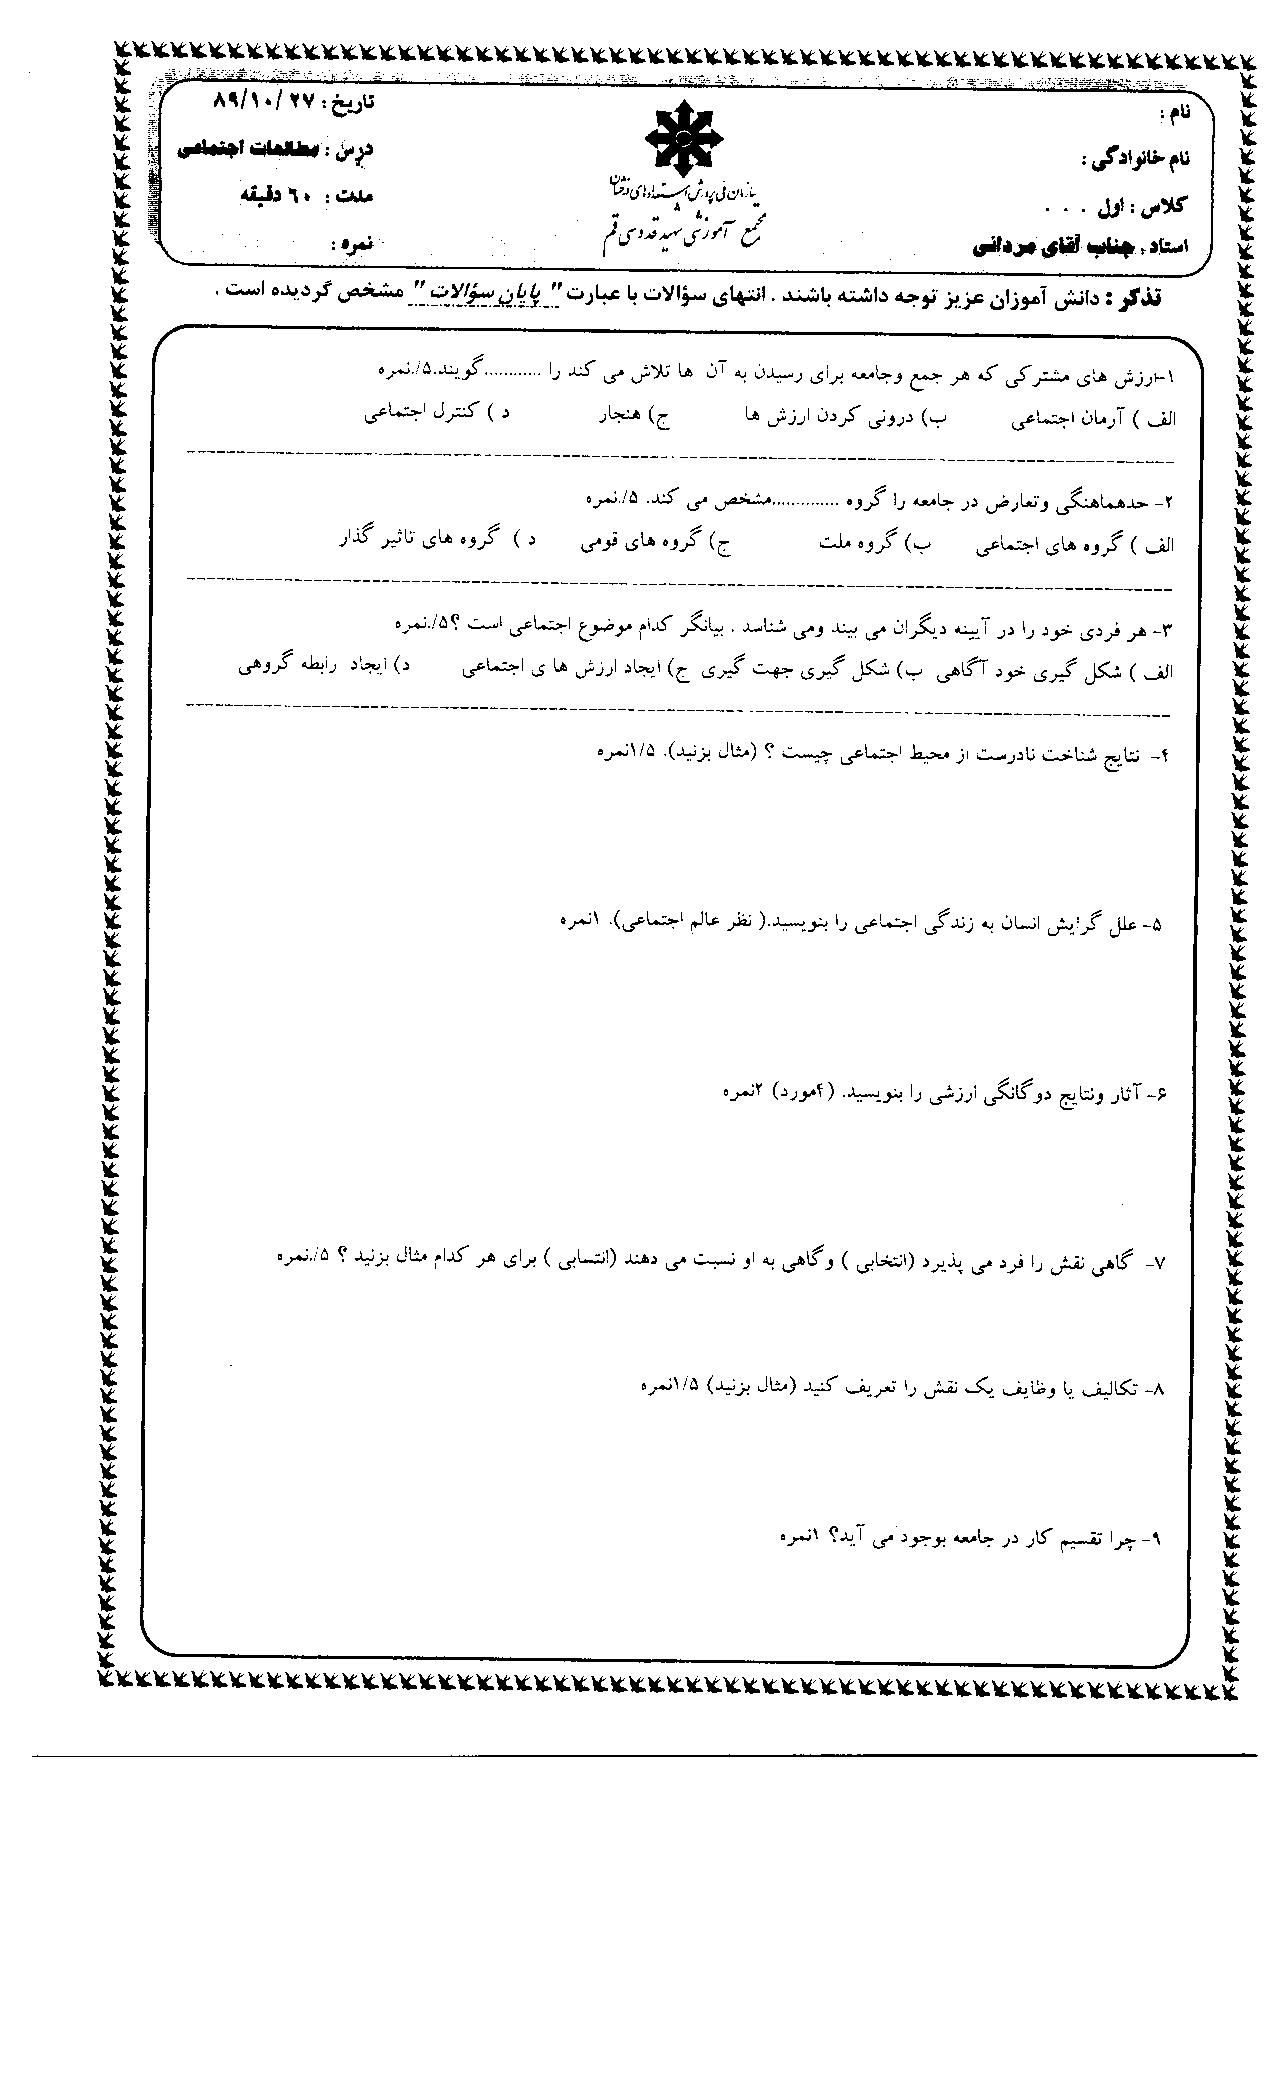 نام :
نام خانوادگی :
کلاس : اول . . .
استاد : جناب آقای مردانی
سازمان ملی پرورش استعدادهای درخشان
مجتمع آموزشی شهید قدوسی قم
تاریخ : ۸۹/۱۰/۲۷
درس : مطالعات اجتماعی
مدت : ۶۰ دقیقه
نمره :
تذکر : دانش آموزان عزیز توجه داشته باشند . انتهای سؤالات با عبارت " پایان سؤالات " مشخص گردیده است .
۱-ارزش های مشترکی که هر جمع وجامعه برای رسیدن به آن ها تلاش می کند را ............گویند.۵/.نمره
الف ) آرمان اجتماعی ب) درونی کردن ارزش ها ج) هنجار د ) کنترل اجتماعی
۲- حدهماهنگی وتعارض در جامعه را گروه ..............مشخص می کند. ۵/.نمره
الف ) گروه های اجتماعی ب) گروه ملت ج) گروه های قومی د ) گروه های تاثیر گذار
۳- هر فردی خود را در آیینه دیگران می بیند ومی شناسد . بیانگر کدام موضوع اجتماعی است ؟۵/.نمره
الف ) شکل گیری خود آگاهی ب) شکل گیری جهت گیری ج) ایجاد ارزش ها ی اجتماعی د) ایجاد رابطه گروهی
۴- نتایج شناخت نادرست از محیط اجتماعی چیست ؟ (مثال بزنید). ۱/۵نمره
۵- علل گرایش انسان به زندگی اجتماعی را بنویسید.( نظر عالم اجتماعی). ۱نمره
۶- آثار ونتایج دوگانگی ارزشی را بنویسید. (۴مورد) ۲نمره
۷- گاهی نقش را فرد می پذیرد (انتخابی ) وگاهی به او نسبت می دهند (انتسابی ) برای هر کدام مثال بزنید ؟ ۵/.نمره
۸- تکالیف یا وظایف یک نقش را تعریف کنید (مثال بزنید) ۱/۵نمره
۹- چرا تقسیم کار در جامعه بوجود می آید؟ ۱نمره